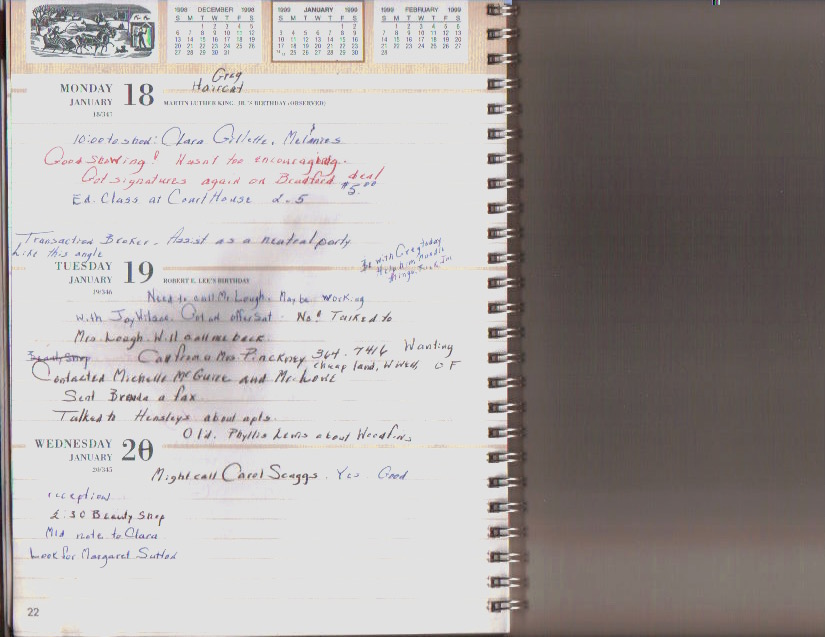 1998 DECEMBER 1998
S M T W T F S
1 2 3 4 5
6 7 8 9 10 11 12
13 14 15 16 17 18 19
20 21 22 23 24 25 26
27 28 29 30 31
1999 JANUARY 1999
S M T W T F S
1 2
3 4 5 6 7 8 9
10 11 12 13 14 15 16
17 18 19 20 21 22 23
24/31 25 26 27 28 29 30
1999 FEBRUARY 1999
S M T W T F S
1 2 3 4 5 6
7 8 9 10 11 12 13
14 15 16 17 18 19 20
21 22 23 24 25 26 27
28
Greg
Haircut
MONDAY
JANUARY 18
18/347
MARTIN LUTHER KING, JR.'S BIRTHDAY (OBSERVED)
10:00 to show: Clara Gillette, Melanies
Good showing! Wasn't too encouraging.
Got signatures again on Bradford deal
$5.00
Ed. Class at Court House 2-5
Transaction Broker - Assist as a neutral party
Like this angle
Be with Greg today
Help him
TUESDAY
JANUARY 19
19/346
ROBERT E. LEE'S BIRTHDAY
Need to call Mr Lough. May be working
with Joy Wilson. Got an offer Sat. No! Talked to
Mrs. Lough. Will call me back.
Beauty Shop
Call from a Mrs Pinckney 364-7416 Wanting
cheap land, W/Well, O F
Contacted Michelle McGuire and Mr. Love
Sent Brenda a fax.
Talked to Hensleys about apts.
Old. Phyllis Lewis about
WEDNESDAY
JANUARY 20
20/345
Might call Carol Scaggs. Yes Good
reception
2:30 Beauty Shop
Mld note to Clara
Look for Margaret Sutton
22